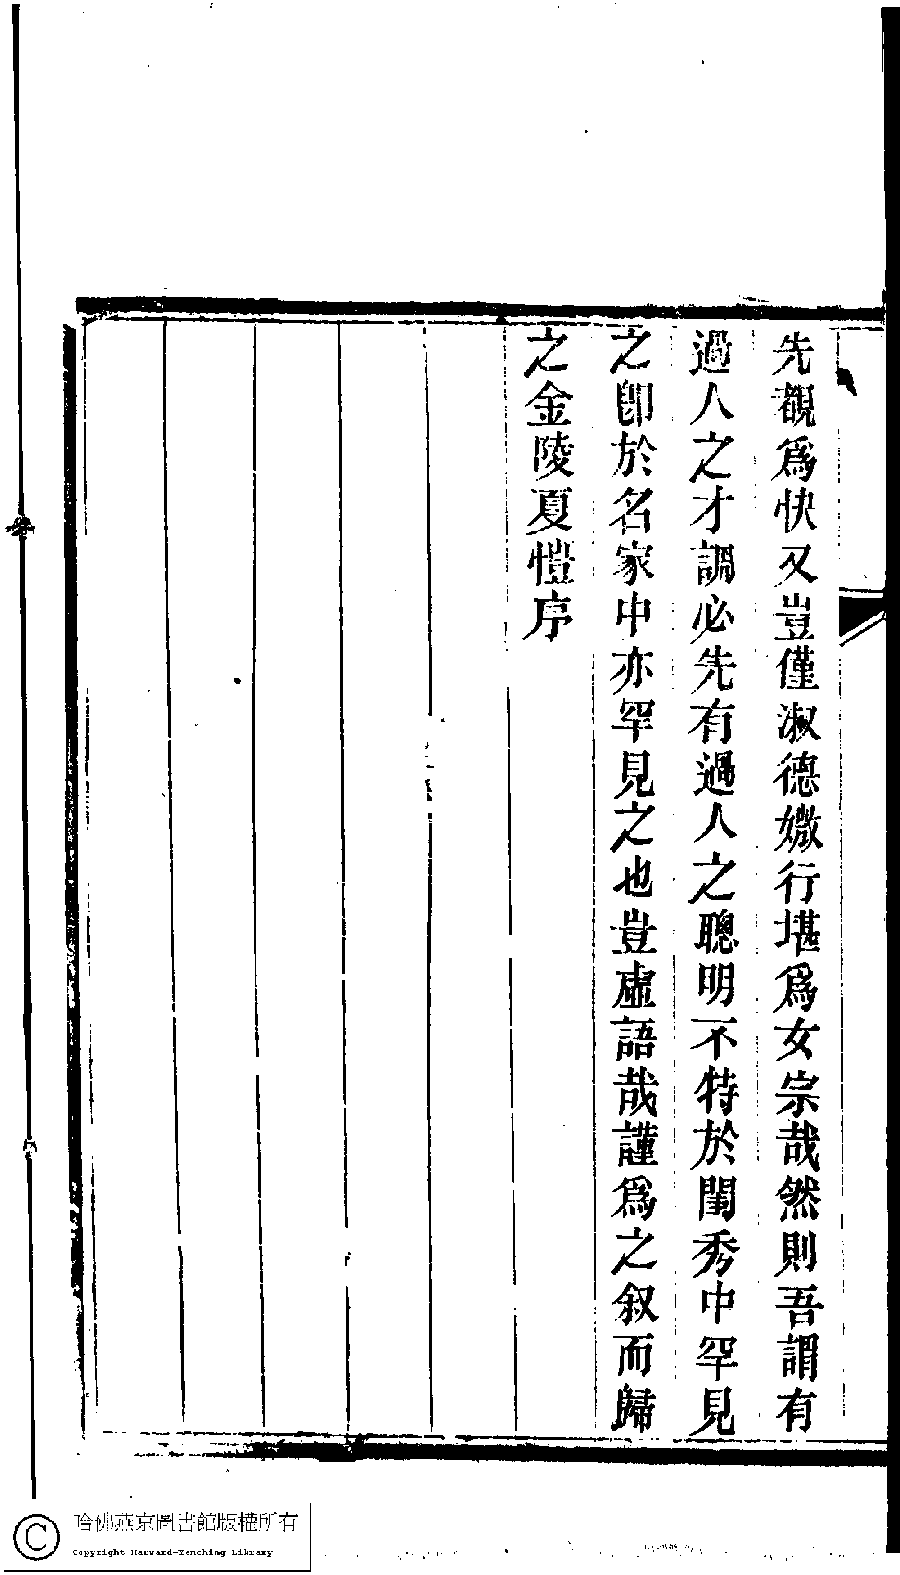 先覩為快又豈僅淑德媺行堪為女宗哉然則吾謂有
過人之才調必先有過人之聰明不特於閨秀中罕見
之卽於名家中亦罕見之也豈虛語哉謹為之叙而歸
之金陵夏愷序
哈佛燕京圖書館版權所有
Copyright Harvard-Yenching Library